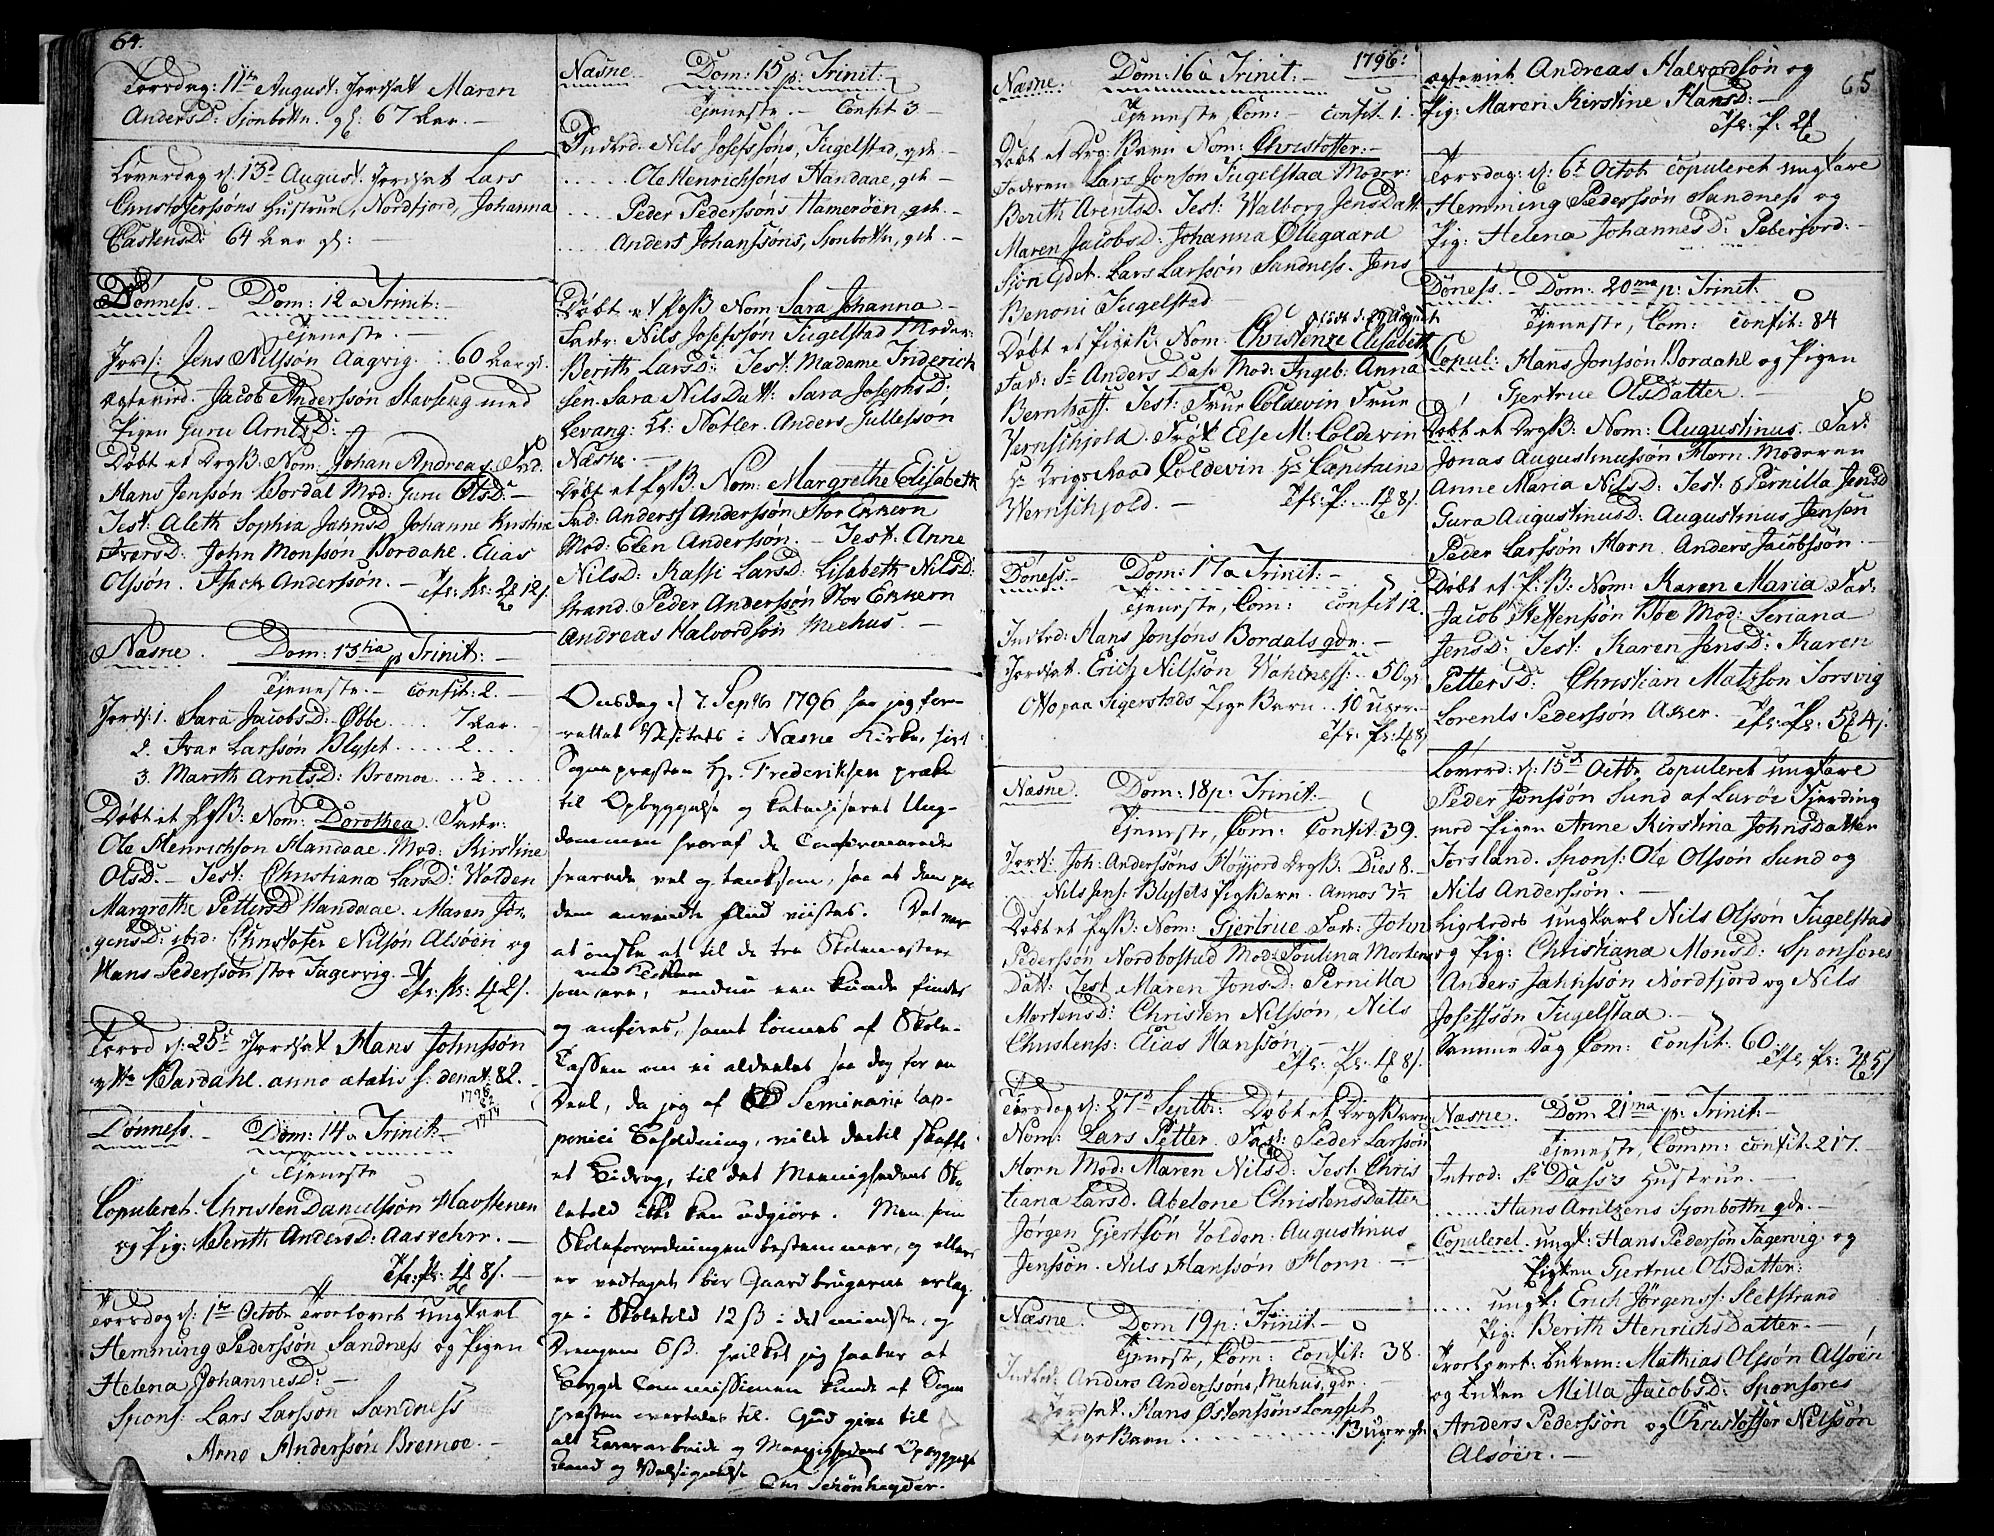 64.
Torsdag: 11te August. Jordsat Maren
AndersD: Sjonbotten. gl: 67 Aar.
Løverdag d: 13de August. Jordsat Lars
Christoferssøns Hustrue, Nordfjord, Johanna
CastensD: 64 Aar gl:
Dønness. Dom: 12 a Trinit:
Tjeneste.
Jords: Jens Nilssøn Aagvig. 60 Aar gl.
Ægteviet. Jacob Anderssøn Stavseng med
Pigen Guru ArntsD:
Døbt et DrgB: Nom: Johan Andreas. Fad:
Hans Jenssøn Bordal Mod: Guru OlsD:
Test: Aleth Sophia JahnsD Johanne Kristina
IversD: John Monssøn Bordahl. Elias
Olssøn. Isach Anderssøn.
Næsne. Dom: 13tia p Trinit:
Tjeneste. Confit: 2.
Jords: 1. Sara JacobsD: Øbbe 7 Aar.
2. Ivar Larssøn Blyset ..... 2 ....
3. Marith ArntsD: Bremoe ... ½ ....
Døbt et PgB: Nom: Dorothea. Fader:
Ole Henrichson Handaae. Mod: Kirstine
OlsD. Test: Christiana LarsD: Wolden
Margrethe PettersD Handaae. Maren Jør
gensD: ibid: Christofer Nilsøn Alsøen og
Hans Pederssøn stor Fagervig.
Torsd d: 25de Jordsat Hans Johnssøn
Bardahl. anno ætatis s: denat: 82.
1796
82
1714
Dønness. Dom: 14 a Trinit:
Tjeneste
Copuleret. Christen Danielssøn Havstenen
og Pig: Berith AndersD: Aasvehr.
Torsdag d: 1te Octobr trorlovet ungkarl
Hemming Pederssøn Sandness og Pigen
Helena JohannesD:
Spons: Lars Larssøn Sandness
Arne Anderssøn Bremoe.
Næsne. Dom: 15 p: Trinit:
Tjeneste. Confit 3
Indled: Nils Josefssøns, Fugelstad, gdt.
..... Ole Henrichsøns Handaae, gdt
.... Peder Pederssøns Hamerøen, gdt.
.... Anders Johanssøns, Sjonbotten, gdt.
Døbt et PgB Nom: Sara Johanna
Fader: Nils Josefssøn Fugelstad Moder:
Berith LarsD: Test: Madame Friderich
sen. Sara NilsDatt: Sara JosephsD:
Levang: Hr: Nøtler. Anders Gullessøn
Næsne.
Døbt et PgB: Nom: Margrethe Elisabeth
Fad: Anders Anderssøn Stor Ekkern
Mod: Elen Anderssøn. Test: Anne
NilsD: Kassi LarsD: Lisabeth NilsD:
Strand. Peder Anderssøn Stor Ekkern
Andreas Halvordsøn Meehus.
Onsdag d 7. Septbr 1796 har jeg for-
rettet Visitats i Næsne Kirke, hvor
Sognepræsten Hr. Frederiksen præke
til Opbyggelse og katechiseret Ung-
dommen hvoraf de Confirmerede
svarede vel og tænksom, saa at dem paa
dem anvendte Flid viistes. Det var
at ønske at til de tre Skolemestere
som ere, endnu een kunde findes
og anføres, samt lønnes af Skole-
Cassen om ei aldeeles saa dog for en
Deel, da jeg af Seminarii Lap-
ponici Besoldning, vilde dertil skaffe
et Bidrag, til det Meenighedens Sko
lehold ikke kan udgiøre. Men som
Skoleforordningen bestemmer, og ellers
er vedtaget bør Gaardbrugerne erlæg
ge i Skolehold 12 ß i det mindste, og
Drengene 6 ß. hvilket jeg haaber at
Bøygde Commissionen kunde af Sogne
præsten overtales til. Gud give til
alt Lærerarbeide og Meenighedens Opbyggelse
Aand og Velsignelse
Schønheyder.
1796:
Næsne. Dom: 16 a Trinit:
Tjeneste, Com: Confit. 1.
Døbt et Drg: Barn Nom: Christoffer:
Faderen Lars Jonson Fugelstaa Moder:
Berith ArentsD. Test: Walborg JensDatt
Maren JacobsD: Johanna Øllegaard
Sjon gdet. Lars Larssøn Sandness. Jens
Benoni Fugelstad
Døbt et PigeB: Nom: Christenze Elisabeth
Fad: Sr Anders Dass Mod: Ingeb: Anna
Bernhoft. Test: Frue Coldevin Frue
Wernschjold. Frøk Else M: Coldevin
Hr Krigsraad Coldevin Hr Capitaine
Wernschjold.
Døness. Dom: 17 a Trinit:
Tjeneste, Com: Confit 12.
Indled: Hans Jonsøns Bordals gdr.
Jordsat. Erich Nilssøn Wahlness: 50 gl.
Otto paa Sigerstads Pige Barn .. 10 uger.
Næsne. Dom: 18 p: Trinit:
Tjeneste, Com: Confit. 39.
Jords: Joh: Anderssøns Fløyjord DrgB: Dies 8.
Nils Jens: Blysets PigBarn. Annos 3½
Døbt et PgB: Nom: Gjertrue Fad: John
Pederssøn Nordbostad Mod: Poulina Morten
Datt: Test Maren JonsD: Pernilla
MortensD: Christen Nilssøn, Nils
Christenss: Elias Hanssøn.
Torsdag d: 27de Septbr: Døbt et DrgBarn
Nom: Lars Petter. Fad: Peder Larssøn
Horn Mod: Maren NilsD: Test: Chris
tiana LarsD. Abelone ChristensDatter
Jørgen Gjertsøn Volden: Augustinus
Jenssøn. Nils Hanssøn Horn.
Næsne. Dom 19 p: Trinit:
Tjeneste, Com: Confit: 38.
Indled: Anders Anderssøns, Mehus, gdr.
Jordsat. Hans Østenssøns Longset
PigeBarn .......... 13 uger gl.
65
Ægteviet Andreas Halvordsøn og
Pig: Maren Kirstine HansD:
Torsdag: d: 6te Octob: copuleret ungkare
Hemming Pederssøn Sandness og
Pig: Helena JohannesD: Peberfjord:
Døness. Dom: 20ma p: Trinit:
Tjeneste, Com: Confit: 84
Copul: Hans Jonssøn Bordahl og Pigen
Gjertrue OlsDatter.
Døbt et DrgB: Nom: Augustinus. Fad:
Jonas Augustinussøn Horn. Moderen
Anne Maria NilsD: Test: Pernilla JensD
Gura AugustinusD: Augustinus Jensen
Peder Larssøn Horn. Anders Jacobssøn
Døbt et P: B: Nom: Karen Maria Fad:
Jacob Steffenssøn Boe Mod: Seriana
JensD: Test: Karen JensD: Karen
PettersD: Christian Matzson Torsvig
Lorents Pederssøn Aker.
Løverd: d: 15de Octbr copuleret ungkare
Peder Jonssøn Sund af Lurøe Fjerding
med Pigen Anne Kirstina JohnsDatter
Forsland. Spons: Ole Olssøn Sund og
Nils Anderssøn.
Ligeledes ungkarl Nils Olssøn Fugelstad
og Pig: Christiana MonsD: Sponsores
Anders Jahnssøn Nordfjord og Nils
Josefssøn Fugelstad.
Samme Dag Com: Confit: 60
Næsne. Dom 21ma p: Trinit:
Tjeneste, Comm: Confit. 217.
Introd: Sr Dass's Hustrue.
..... Hans Arntzens Sjonbotten gdr.
Copuleret. ungk: Hans Pedersøn Fagervig og
Pigken Gjertrue OlsDatter:
.... ungk: Erich Jørgenss: Sletstrand
Pig: Berith HenrichsDatter.
Trolovet: Enkem: Mathias Olssøn Alsøen
og Enken Milla JacobsD: Sponsores
Anders Pederssøn og Christoffer Nilssøn
Alsøen.